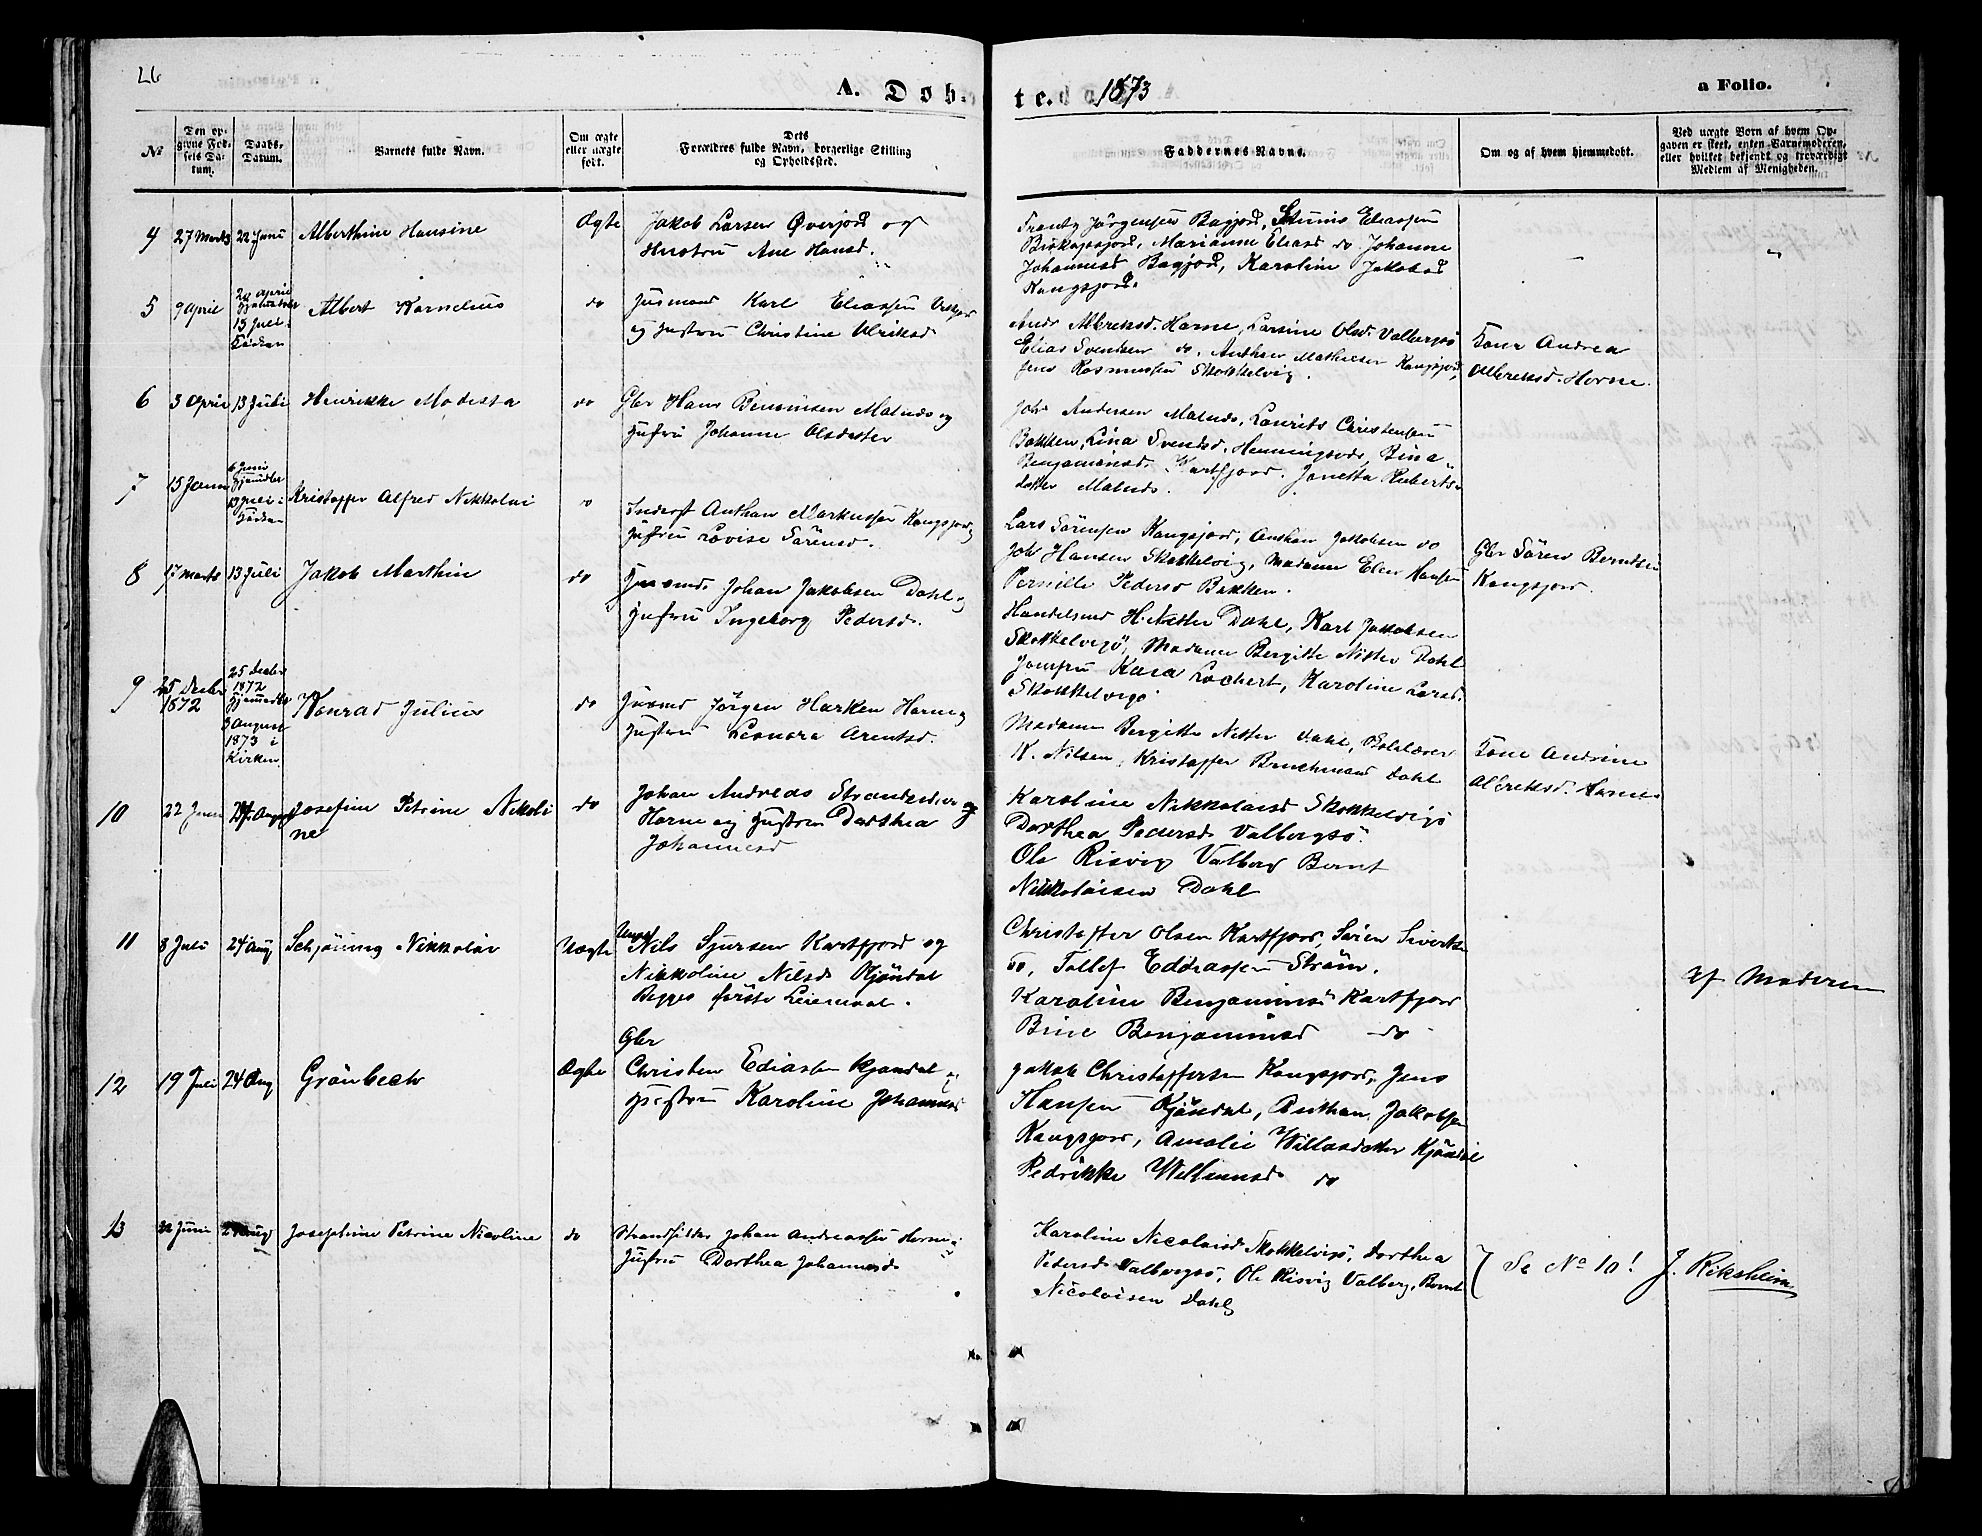 26
A. Døb-
te. 1873
a Folio.
№
Den op-
givne Fød-
sels Da-
tum.
Daabs-
Datum.
Barnets fulde Navn.
Om ægte
eller uægte
født.
Dets
Forældres fulde Navn, borgerlige Stilling
og Opholdssted.
Faddernes Navne.
Om og af hvem hjemmedøbt.
Ved uægte Børn af hvem Op-
gaven er skeet, enten Barnemoderen,
eller hvilket bekjendt og troværdigt
Medlem af Menigheden.
4
27 Marts
22 Juni
Alberthine Hansine
Ægte
Jakob Larsen Øverjord og
Hustru Ane Hansd.
Frantz Jörgensen Bagjord, Eliassen
Biskopsjord, Marianne Eliasd do Johanne
Johannesd Bagjord, Karoline Jakobsd
Kongsjord.
5
9 April
20 April
Hjemmedøbt
13 Juli i
Kirken
Albert Kornelius
do
Husmand Karl Eliassen
og Hustru Christine Ulriksd
Albreksd. Horne, Larsine Olsd. Valbergsö
Elias Svendsen do. Anthon Mathisen Kongsjord,
Jens Rasmussen Skokkelvig.
Kone Andrea
Albreksd. Horne.
6
3 April
13 Juli
Henrikke Modesta
do
Gbr Hans Benonisen Malnes og
Hustru Johanne Olsdatter
Joh. Andersen Malnes, Laurits Christensen
Bakken, Lina Svendsd. Henningsvær, Bina
Benjaminsd. Kartfjord. Janetta Ruberts-
datter Malnes.
7
15 Janu
6 Juni
Hjemdbt
13 Juli i
Kirken
Kristoffer Alfred Nikkolai
do
Inderst Anthon Markussen Kongsjord
Hustru Lovise Sörensd.
Lars Sörensen Kongsjord, Anthon Jakobsen do
Joh Hansen Skokkelvig, Madame Elen Hansen
Pernille Pedersd Bakken.
Gbr Sören Berntsen
Kongsjord.
8
17 Marts
13 Juli
Jakob Marthin
do
Husmd. Johan Jakobsen Dahl og
Hustru Ingeborg Pedersd.
Handelsmd H. Netter Dahl, Karl Jakobsen
Skokkelvigö, Madame Bergitte Netter Dahl
Jomfru Kaia Lochert, Karoline Larsd.
Skokkelvigö
9
25 Decbr
1872
25 Decbr
1872
Hjemmedbt
3 August
1873 i
Kirken
Konrad Julius
do
Husmd Jörgen Harken Horne og
Hustru Leonora Arentsd.
Madame Bergitte Netter Dahl,
K. Nilsen, Kristoffer Bruchmand Dahl
Kone Andrine
Albreksd. Horne
10
22 Juni
24 August
Josefine Petrine Nikoli
ne
do
Johan Andreas
Horne og Hustru Dorthea
Johannesd
Karoline Nikkolaisd Skokkelvigö
Dorthea Pedersd Valbergsö.
Ole Risvig Valberg Bernt
Nikkolaisen Dahl
11
8 Juli
24 Aug
Schjöning Nikkolai
Uægte
Ungk Nils Sjursen Kartfjord og
Nikkoline Nilsd Kjöndal
Begges förste Leiermaal.
Christoffer Olsen Kartfjord, Sören Sivertsen
do, Tollef Eddiassen Ström,
Karoline Benjaminsd Kartfjord
Bine Benjaminsd do
Af Moderen
12
19 Juli
24 Aug
Grönbech
Ægte
Gbr
Christen Ediassen Kjöndal og
Hustru Karoline Johannesd
Jakob Christoffersen Kongsjord, Jens
Hansen Kjöndal, Anthon Jakobsen
Kongsjord, Amalie Willasdatter Kjöndal
Pedrikke Willumsd. do
13
22 Juni
24 Aug
Josephine Petrine Nicoline
do
Strandsidder Johan Andreassen Horne
Hustru Dorthea Johannesd
Karoline Nicolaisd Skokkelvigö, Dorthea
Pedersd Valbergsö, Ole Risvig Valberg, Bernt
Nicolaisen Dahl
Se No 10!
J. Riksheim